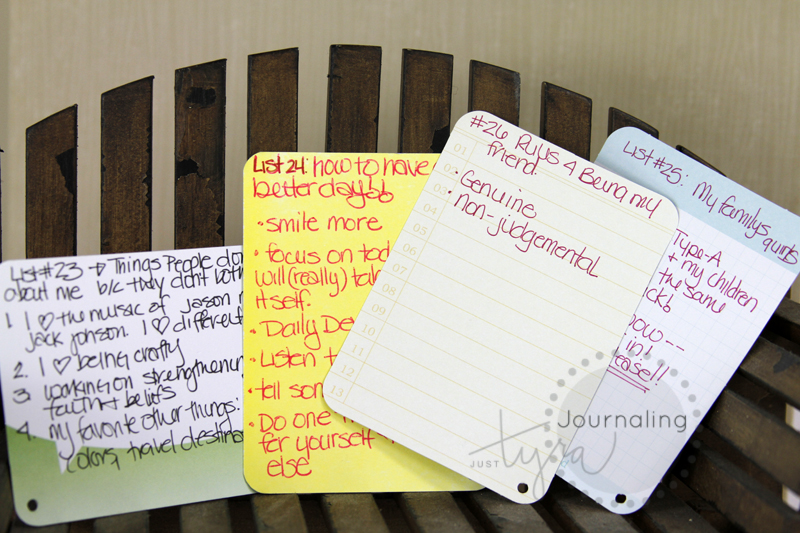 List #23 → Things People don
about me b/c they don't both
1. I ♡ the music of Jason
Jack Johnson. I ♡ different
2. I ♡ being crafty
3 working on strengthening
faith + beliefs
4. my favorite other things:
colors, travel destina
List 24: how to have
better day!!
• smile more
• focus on tod
will (really) tak
itself.
• Daily De
• Listen t
• tell som
• Do one
for yourself
else
#26 Rules 4 Being my
friend.
• Genuine
• non-judgemental
01
02
03
04
05
06
07
08
09
10
11
12
13
List #25: My family's quirks
Type-A
+ my children
the same
ck!
now--
in!
ease!!
Journaling
JUST Tyra